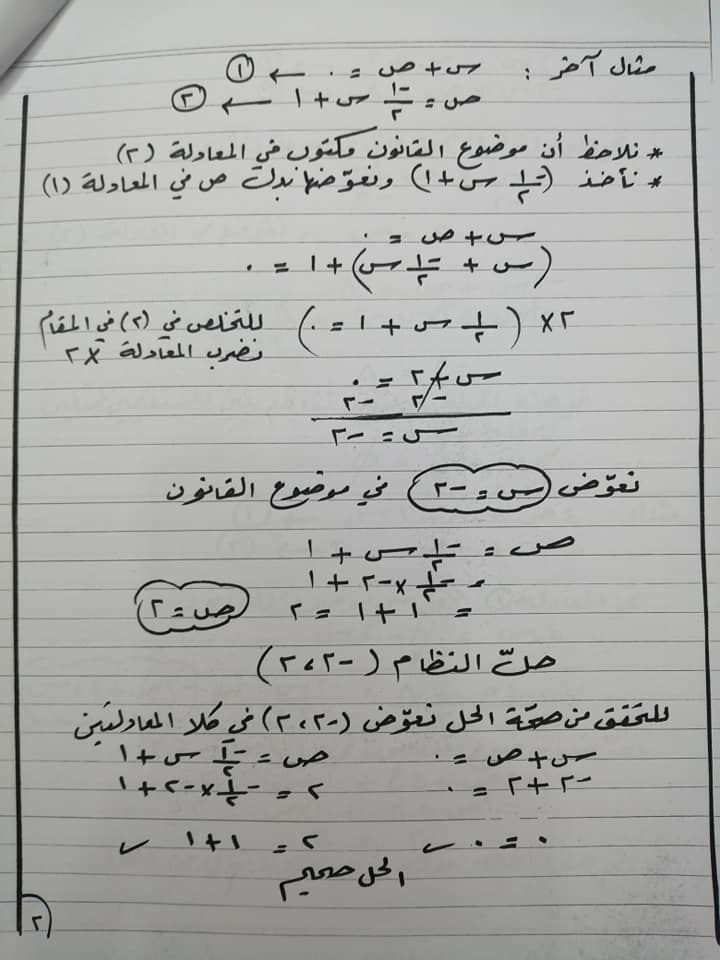 مثال آخر : س + ص = ٠ ← ①
ص = -١/٢ س + ١ ← ②
* نلاحظ أن موضوع القانون مكتوب في المعادلة (٢)
* نأخذ (-١/٢ س + ١) ونعوّضها بدل ص في المعادلة (١)
س + ص = ٠
(س + -١/٢ س) + ١ = ٠
٢× (١/٢ س + ١ = ٠) للتخلص في (٢) في المقام
نضرب المعادلة ×٢
س + ٢ = ٠
-٢ -٢
س = -٢
نعوّض س = -٢ في موضوع القانون
ص = -١/٢ س + ١
= -١/٢ × -٢ + ١
= ١ + ١ = ٢ ص = ٢
حلّ النظام (-٢ ، ٢)
للتحقق من صحّة الحل نعوّض (-٢ ، ٢) في كلا المعادلتين
س + ص = ٠ ص = -١/٢ س + ١
-٢ + ٢ = ٠ ٢ = -١/٢ × -٢ + ١
٠ = ٠ ✓ ٢ = ١ + ١ ✓
الحل صحيح
٢